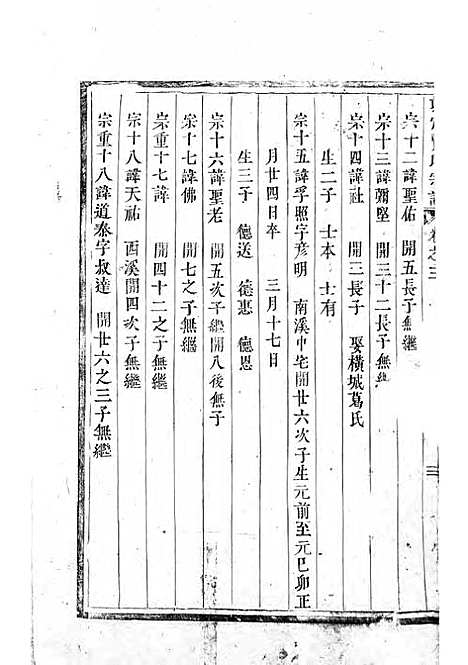 宗十二諱聖佑　開五長子無繼
宗十三諱彌堅　開三十二長子無繼
宗十四諱社　開三長子　娶橫城葛氏
生二子　士本　士有
宗十五諱孚照字彥明　南溪中宅開廿六次子生元前至元巳卯正
月廿四日卒　三月十七日
生三子　德送　德惠　德恩
宗十六諱聖老　開五次子繼開八後無子
宗十七諱佛　開七之子無繼
宗重十七諱　開四十二之子無繼
宗十八諱天祐　西溪開四次子無繼
宗重十八諱道泰字叔達　開廿六之三子無繼